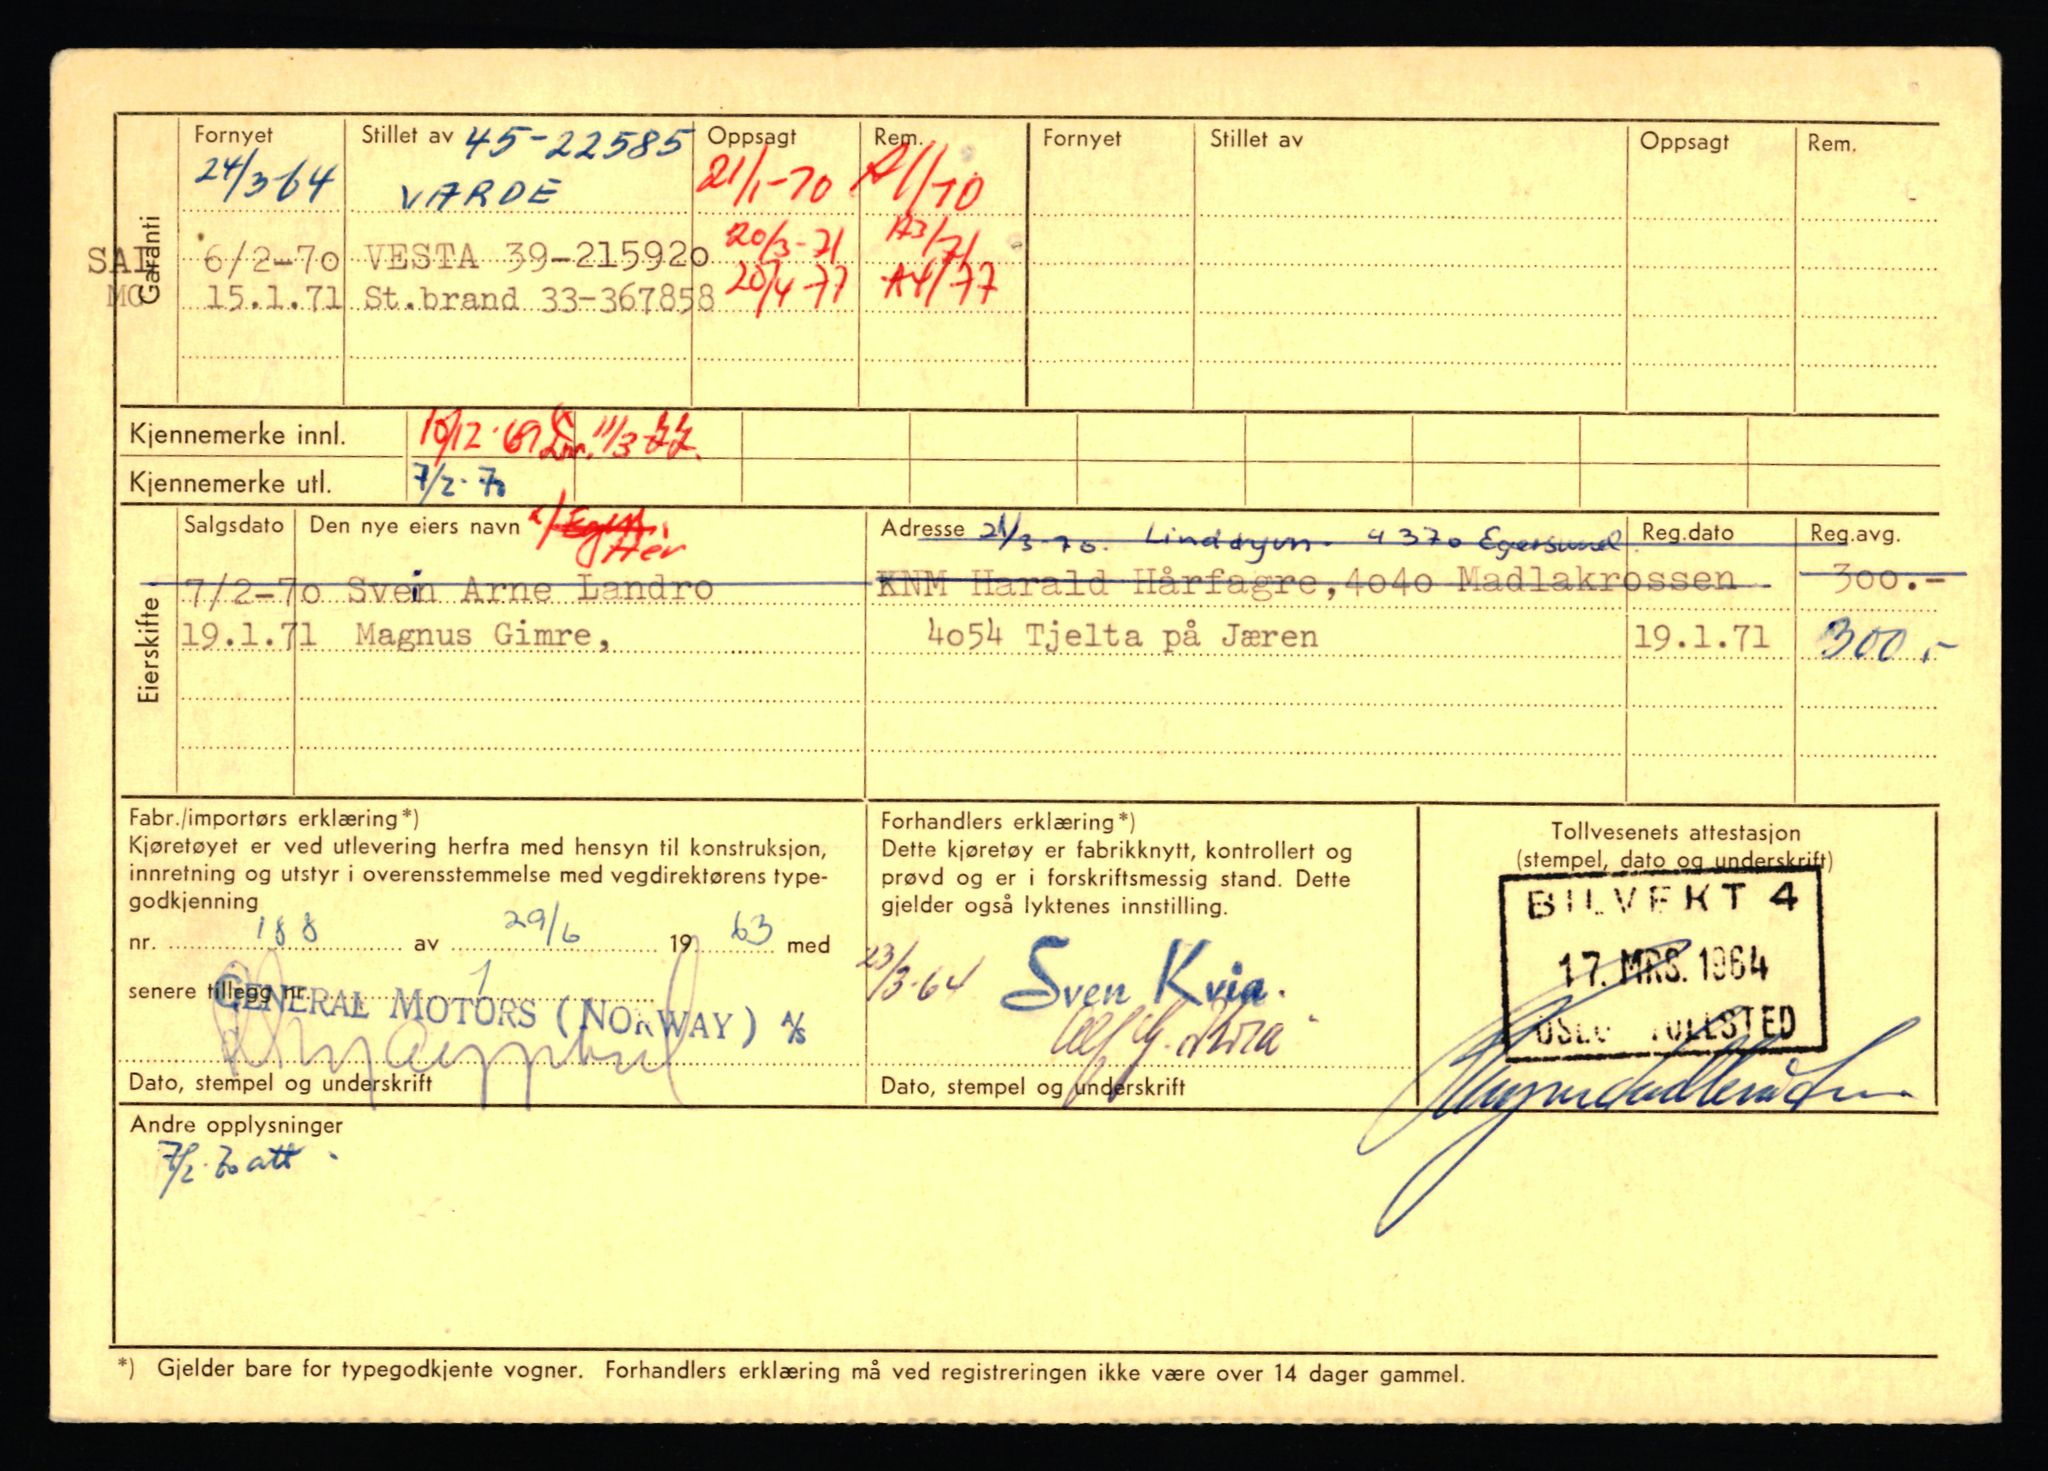 Garanti
Fornyet Stillet av 45-22585 Oppsagt Rem. Fornyet Stillet av Oppsagt Rem.
24/3-64 VARDE 21/1-70 A1/70
SAL 6/2-70 VESTA 39-215920 20/3-71 A3/71
MG 15.1.71 St.brand 33-367858 20/4-77 A4/77
Kjennemerke innl. 10/12-69 11/3-77.
Kjennemerke utl. 7/2-70
Eierskifte
Salgsdato Den nye eiers navn Adresse 21/3-70. 4370 Egersund Reg.dato Reg.avg.
Her
7/2-70 Svein Arne Landro KNM Harald Hårfagre, 4040 Madlakrossen 300.-
19.1.71 Magnus Gimre, 4054 Tjelta på Jæren 19.1.71 300,-
Fabr./importørs erklæring*)
Kjøretøyet er ved utlevering herfra med hensyn til konstruksjon,
innretning og utstyr i overensstemmelse med vegdirektørens type-
godkjenning
nr. 188 av 29/6 1963 med
senere tillegg nr. 1
GENERAL MOTORS (NORWAY) A/S
Dato, stempel og underskrift
Forhandlers erklæring*)
Dette kjøretøy er fabrikknytt, kontrollert og
prøvd og er i forskriftsmessig stand. Dette
gjelder også lyktenes innstilling.
23/3-64 Sven Kvia.
Dato, stempel og underskrift
Tollvesenets attestasjon
(stempel, dato og underskrift)
BILVEKT 4
17. MRS. 1964
OSLO TOLLSTED
Andre opplysninger
7/2-70 att.
*) Gjelder bare for typegodkjente vogner. Forhandlers erklæring må ved registreringen ikke være over 14 dager gammel.